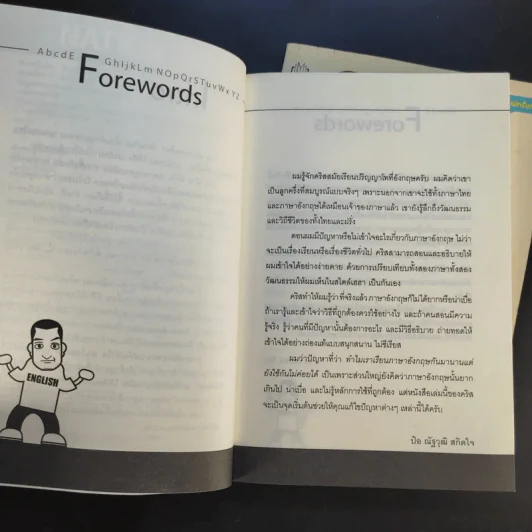 AbcdE GhijkLm NOpQrSTuVwXYZ
Forewords
ENGLISH
ผมรู้จักคริสสมัยเรียนปริญญาโทที่อังกฤษครับ ผมคิดว่าเขา
เป็นลูกครึ่งที่สมบูรณ์แบบจริงๆ เพราะนอกจากเขาจะใช้ทั้งภาษาไทย
และภาษาอังกฤษได้เหมือนเจ้าของภาษาแล้ว เขายังรู้ลึกถึงวัฒนธรรม
และวิถีชีวิตของทั้งไทยและฝรั่ง
ตอนผมมีปัญหาหรือไม่เข้าใจอะไรเกี่ยวกับภาษาอังกฤษ ไม่ว่า
จะเป็นเรื่องเรียนหรือเรื่องชีวิตทั่วไป คริสสามารถสอนและอธิบายให้
ผมเข้าใจได้อย่างง่ายดาย ด้วยการเปรียบเทียบทั้งสองภาษาทั้งสอง
วัฒนธรรมให้ผมเห็นในสไตล์เฮฮา เป็นกันเอง
คริสทำให้ผมรู้ว่า ที่จริงแล้ว ภาษาอังกฤษก็ไม่ได้ยากหรือน่าเบื่อ
ถ้าเรารู้และเข้าใจว่าวิธีที่ถูกต้องควรใช้อย่างไร และถ้าคนสอนมีความ
รู้จริง รู้ว่าคนที่มีปัญหานั้นต้องการอะไร และมีวิธีอธิบาย ถ่ายทอดให้
เข้าใจได้อย่างถ่องแท้แบบสนุกสนาน ไม่ซีเรียส
ผมว่าปัญหาที่ว่า ทำไมเราเรียนภาษาอังกฤษกันมานานแต่
ยังใช้กันไม่ค่อยได้ เป็นเพราะส่วนใหญ่ยังคิดว่าภาษาอังกฤษนั้นยาก
เกินไป น่าเบื่อ และไม่รู้หลักการใช้ที่ถูกต้อง แต่หนังสือเล่มนี้ของคริส
จะเป็นจุดเริ่มต้นช่วยให้คุณแก้ไขปัญหาต่างๆ เหล่านี้ได้ครับ
ป๋อ ณัฐวุฒิ สกิดใจ